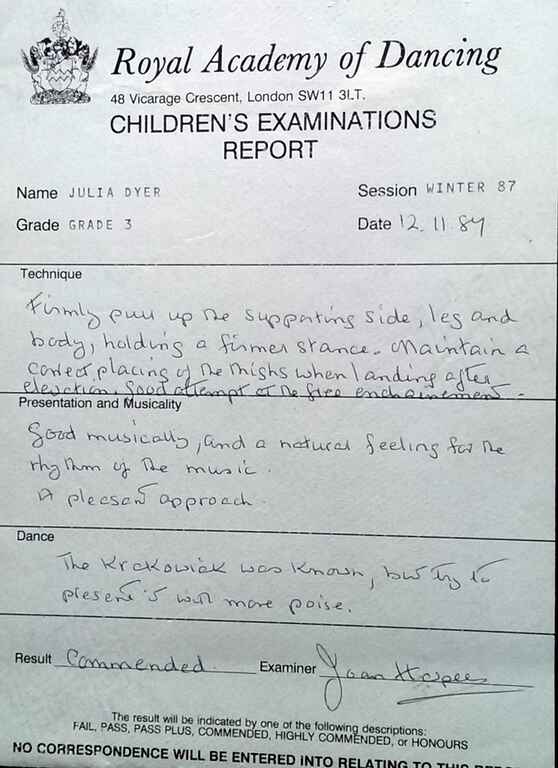 Royal Academy of Dancing
48 Vicarage Crescent, London SW11 3LT.
CHILDREN'S EXAMINATIONS
REPORT
Name JULIA DYER
Session WINTER 87
Grade GRADE 3
Date 12.11.87
Technique
Firmly pull up the supporting side, leg and
body, holding a firmer stance. Maintain a
correct placing of the thighs when landing after
elevation. Good attempt at the free enchainement.
Presentation and Musicality
Good musically, and a natural feeling for the
rhythm of the music.
A pleasant approach.
Dance
The Krakowiak was known, but try to
present it with more poise.
Result Commended.
Examiner Joan
The result will be indicated by one of the following descriptions:
FAIL, PASS, PASS PLUS, COMMENDED, HIGHLY COMMENDED, or HONOURS
NO CORRESPONDENCE WILL BE ENTERED INTO RELATING TO